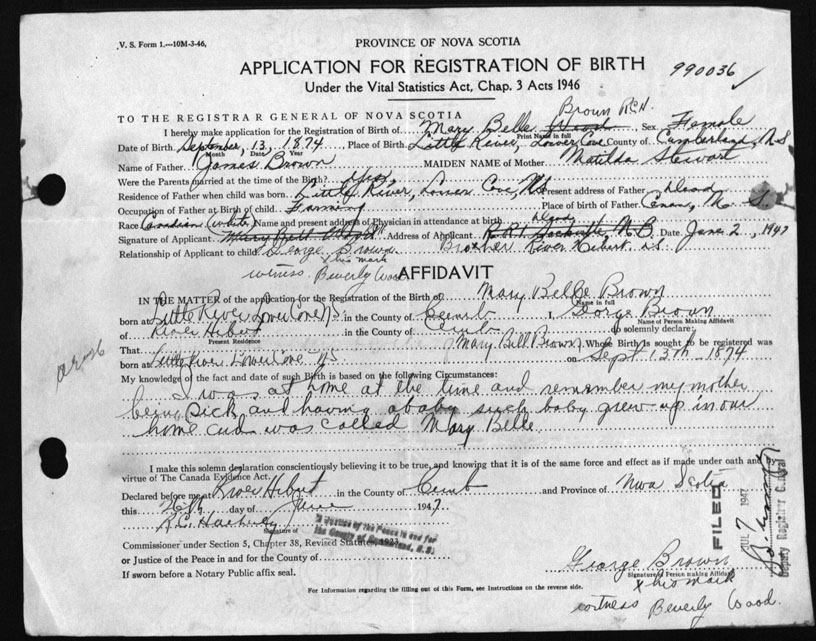 V. S. Form 1.—10M-3-46.
PROVINCE OF NOVA SCOTIA
APPLICATION FOR REGISTRATION OF BIRTH
990036
Under the Vital Statistics Act, Chap. 3 Acts 1946
TO THE REGISTRAR GENERAL OF NOVA SCOTIA
Brown
I hereby make application for the Registration of Birth of Mary Belle Wood Sex Female
Print Name in full
Date of Birth September 13 1874, Place of Birth Little River, Lower Cove County of Cumberland, N S
Month Date Year
Name of Father James Brown MAIDEN NAME of Mother Matilda Stewart
Were the Parents married at the time of the Birth? Yes
Residence of Father when child was born Little River, Lower Cove, NS Present address of Father Dead
Occupation of Father at Birth of child Farming Place of birth of Father N. S.
Race Canadian (white) Name and present address of Physician in attendance at birth dead
Signature of Applicant Mary Bell Wood Address of Applicant R.R.1 Sackville N.B. Date June 2, 1947
Relationship of Applicant to child George Brown Brother River Hebert N.S
x his mark
witness Beverly Wood
AFFIDAVIT
IN THE MATTER of the application for the Registration of the Birth of Mary Belle Brown
Name in full
born at Little River Lower Cove NS in the County of Cumb I, George Brown
Name of Person Making Affidavit
of River Hebert in the County of Cumb do solemnly declare:
Present Residence
That Mary Bell Brown Whose Birth is sought to be registered was
born at Little River Lower Cove NS on Sept 13th 1874
My knowledge of the fact and date of such Birth is based on the following Circumstances:
I was at home at the time and remember my mother
being sick and having a baby such baby grew up in our
home and was called Mary Belle
I make this solemn declaration conscientiously believing it to be true, and knowing that it is of the same force and effect as if made under oath and by
virtue of The Canada Evidence Act.
Declared before me at River Hebert in the County of Cumb and Province of Nova Scotia
this day of June 1947
Signature of
A Justice of the Peace in and for
the County of Cumberland, N.S.
Commissioner under Section 5, Chapter 38, Revised Statutes, 1923
or Justice of the Peace in and for the County of
If sworn before a Notary Public affix seal.
George Brown
Signature of Person making Affidavit
x his mark
witness Beverly Wood
For Information regarding the filling out of this Form, see Instructions on the reverse side.
FILED
JUL 7 1947
Deputy Registrar General